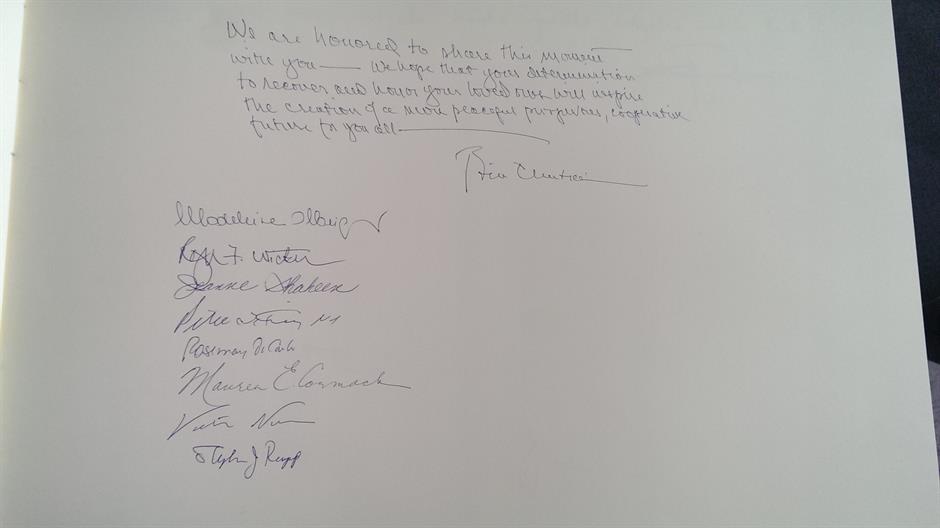 We are honored to share this moment
with you — We hope that your determination
to recover and honor your loved ones will inspire
the creation of a more peaceful prosperous, cooperative
future for you all —
Bill Clinton
Madeleine Albright
Roger F. Wicker
Jeanne Shaheen
Peter King NY
Rosemary DiCarlo
Maureen E Cormack
Victoria
Stephen J Rapp